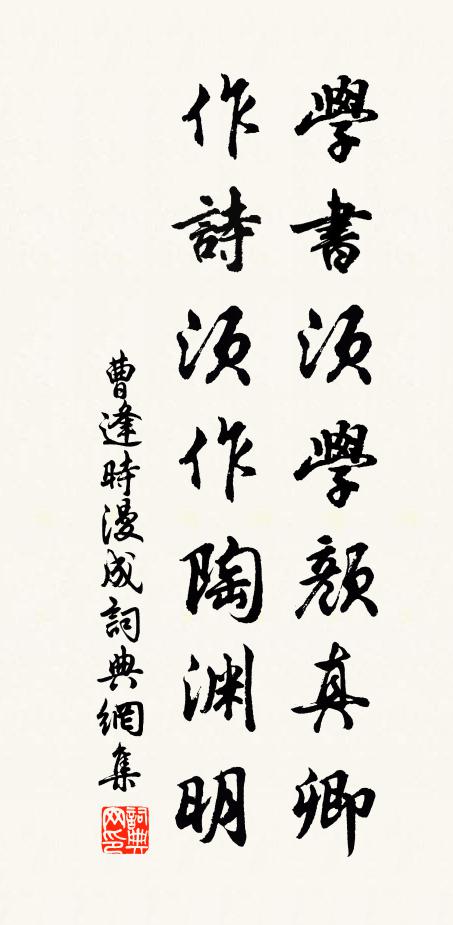 學書須學顏真卿
作詩須作陶渊明
曹逢時漫成詞典網集
詞典网印